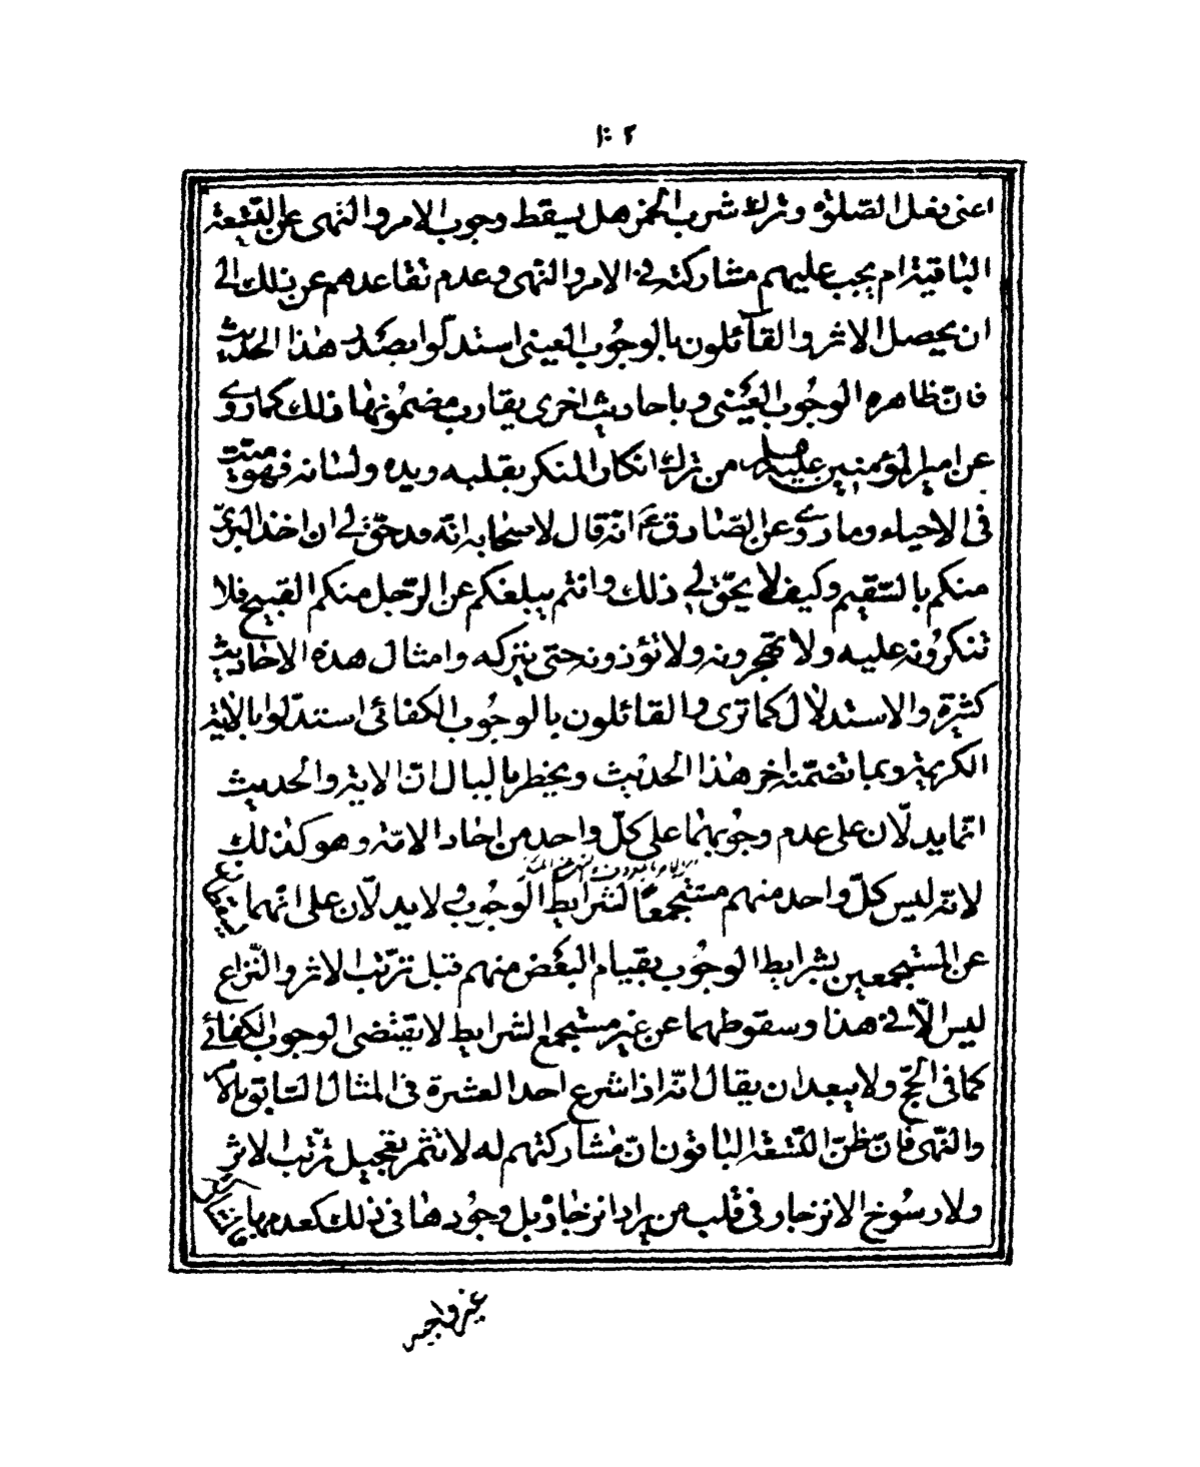 ١٠٢
اعنى بفعل الصّلوة وترك شرب الخمر هل يسقط وجوب الامر والنّهى عن التّسعة
الباقية ام يجب عليهم مشاركته فى الامر والنّهى وعدم تقاعدهم عن ذلك الى
ان يحصل الاثر والقائلون بالوجوب العينى استدلّوا بصدر هذا الحديث
فانّ ظاهره الوجوب العينى وباحاديث اخرى يقارب مضمونها ذلك كما روى
عن امير المؤمنين عليه من ترك انكار المنكر بقلبه ويده ولسانه فهو ميّت
فى الاحياء وما روى عن الصّادق ع انّه قال لاصحابه انّه قد حقّ لى ان اخذ البرئ
منكم بالسّقيم وكيف لا يحقّ لى ذلك وانتم يبلغكم عن الرّجل منكم القبيح فلا
تنكرونه عليه ولا تهجرونه ولا تؤذونه حتى يتركه وامثال هذه الاحاديث
كثيرة والاستدلال كما ترى والقائلون بالوجوب الكفائى استدلّوا بالاية
الكريمة وبما تضمّنه اخر هذا الحديث ويخطر بالبال انّ الاية والحديث
انّما يدلّان على عدم وجوبهما على كلّ واحد من احاد الامّة وهو كذلك
لانّه ليس كلّ واحد منهم مستجمعًا لشرايط الوجوب ولا يدلّان على انّهما
عن المستجمعين بشرايط الوجوب بقيام البعض منهم قبل ترتّب الاثر والنّزاع
ليس الّا فى هذا وسقوطهما عن غير مستجمع الشرايط لا يقتضى الوجوب الكفائى
كما فى الحجّ ولا يبعد ان يقال انّه اذا شرع احد العشرة فى المثال السّابق بالامر
والنّهى فان ظنّ التّسعة الباقون انّ مشاركتهم له لا تثمر تعجيل ترتّب الاثر
ولا رسوخ الانزجار فى قلب من يراد انزجاره بل وجودها فى ذلك كعدمها
غير واجب